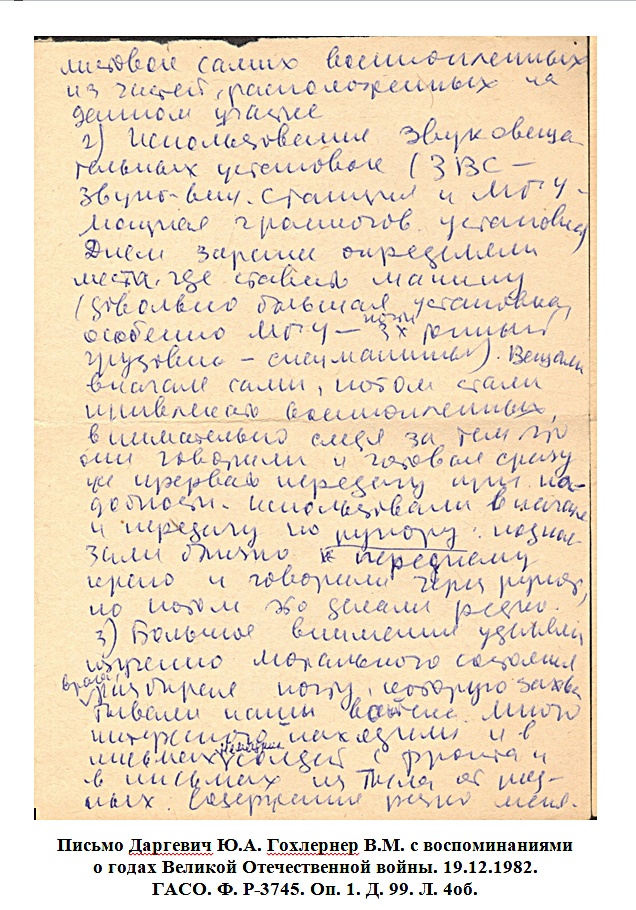 листовок самих военнопленных
из частей, расположенных на
данном участке
2) Использование звуковеща
тельных установок (ЗВС –
звуко-вещ. станция и МГУ –
мощная громкогов. установка)
Днем заранее определяли
места, где ставить машину
(довольно большая установка,
особенно МГУ – почти 3х тонный
грузовик – спецмашины). Вещали
вначале сами, потом стали
привлекать военнопленных,
внимательно следя за тем что
они говорили и готовая сразу
же прервать передачу при на-
добности. Использовали вначале
и передачу по рупору: подпол-
зали близко к переднему
краю и говорили через рупор,
но потом это делали редко.
3) Большое внимание уделяли
изучению морального состояния
врага, разбирали почту, которую захва
тывали наши войска. Много
интересного находили и в
письмах немецких солдат с фронта и
в письмах из тыла от род-
ных. Содержание резко меня-
Письмо Даргевич Ю.А. Гохлернер В.М. с воспоминаниями
о годах Великой Отечественной войны. 19.12.1982.
ГАСО. Ф. Р-3745. Оп. 1. Д. 99. Л. 4об.